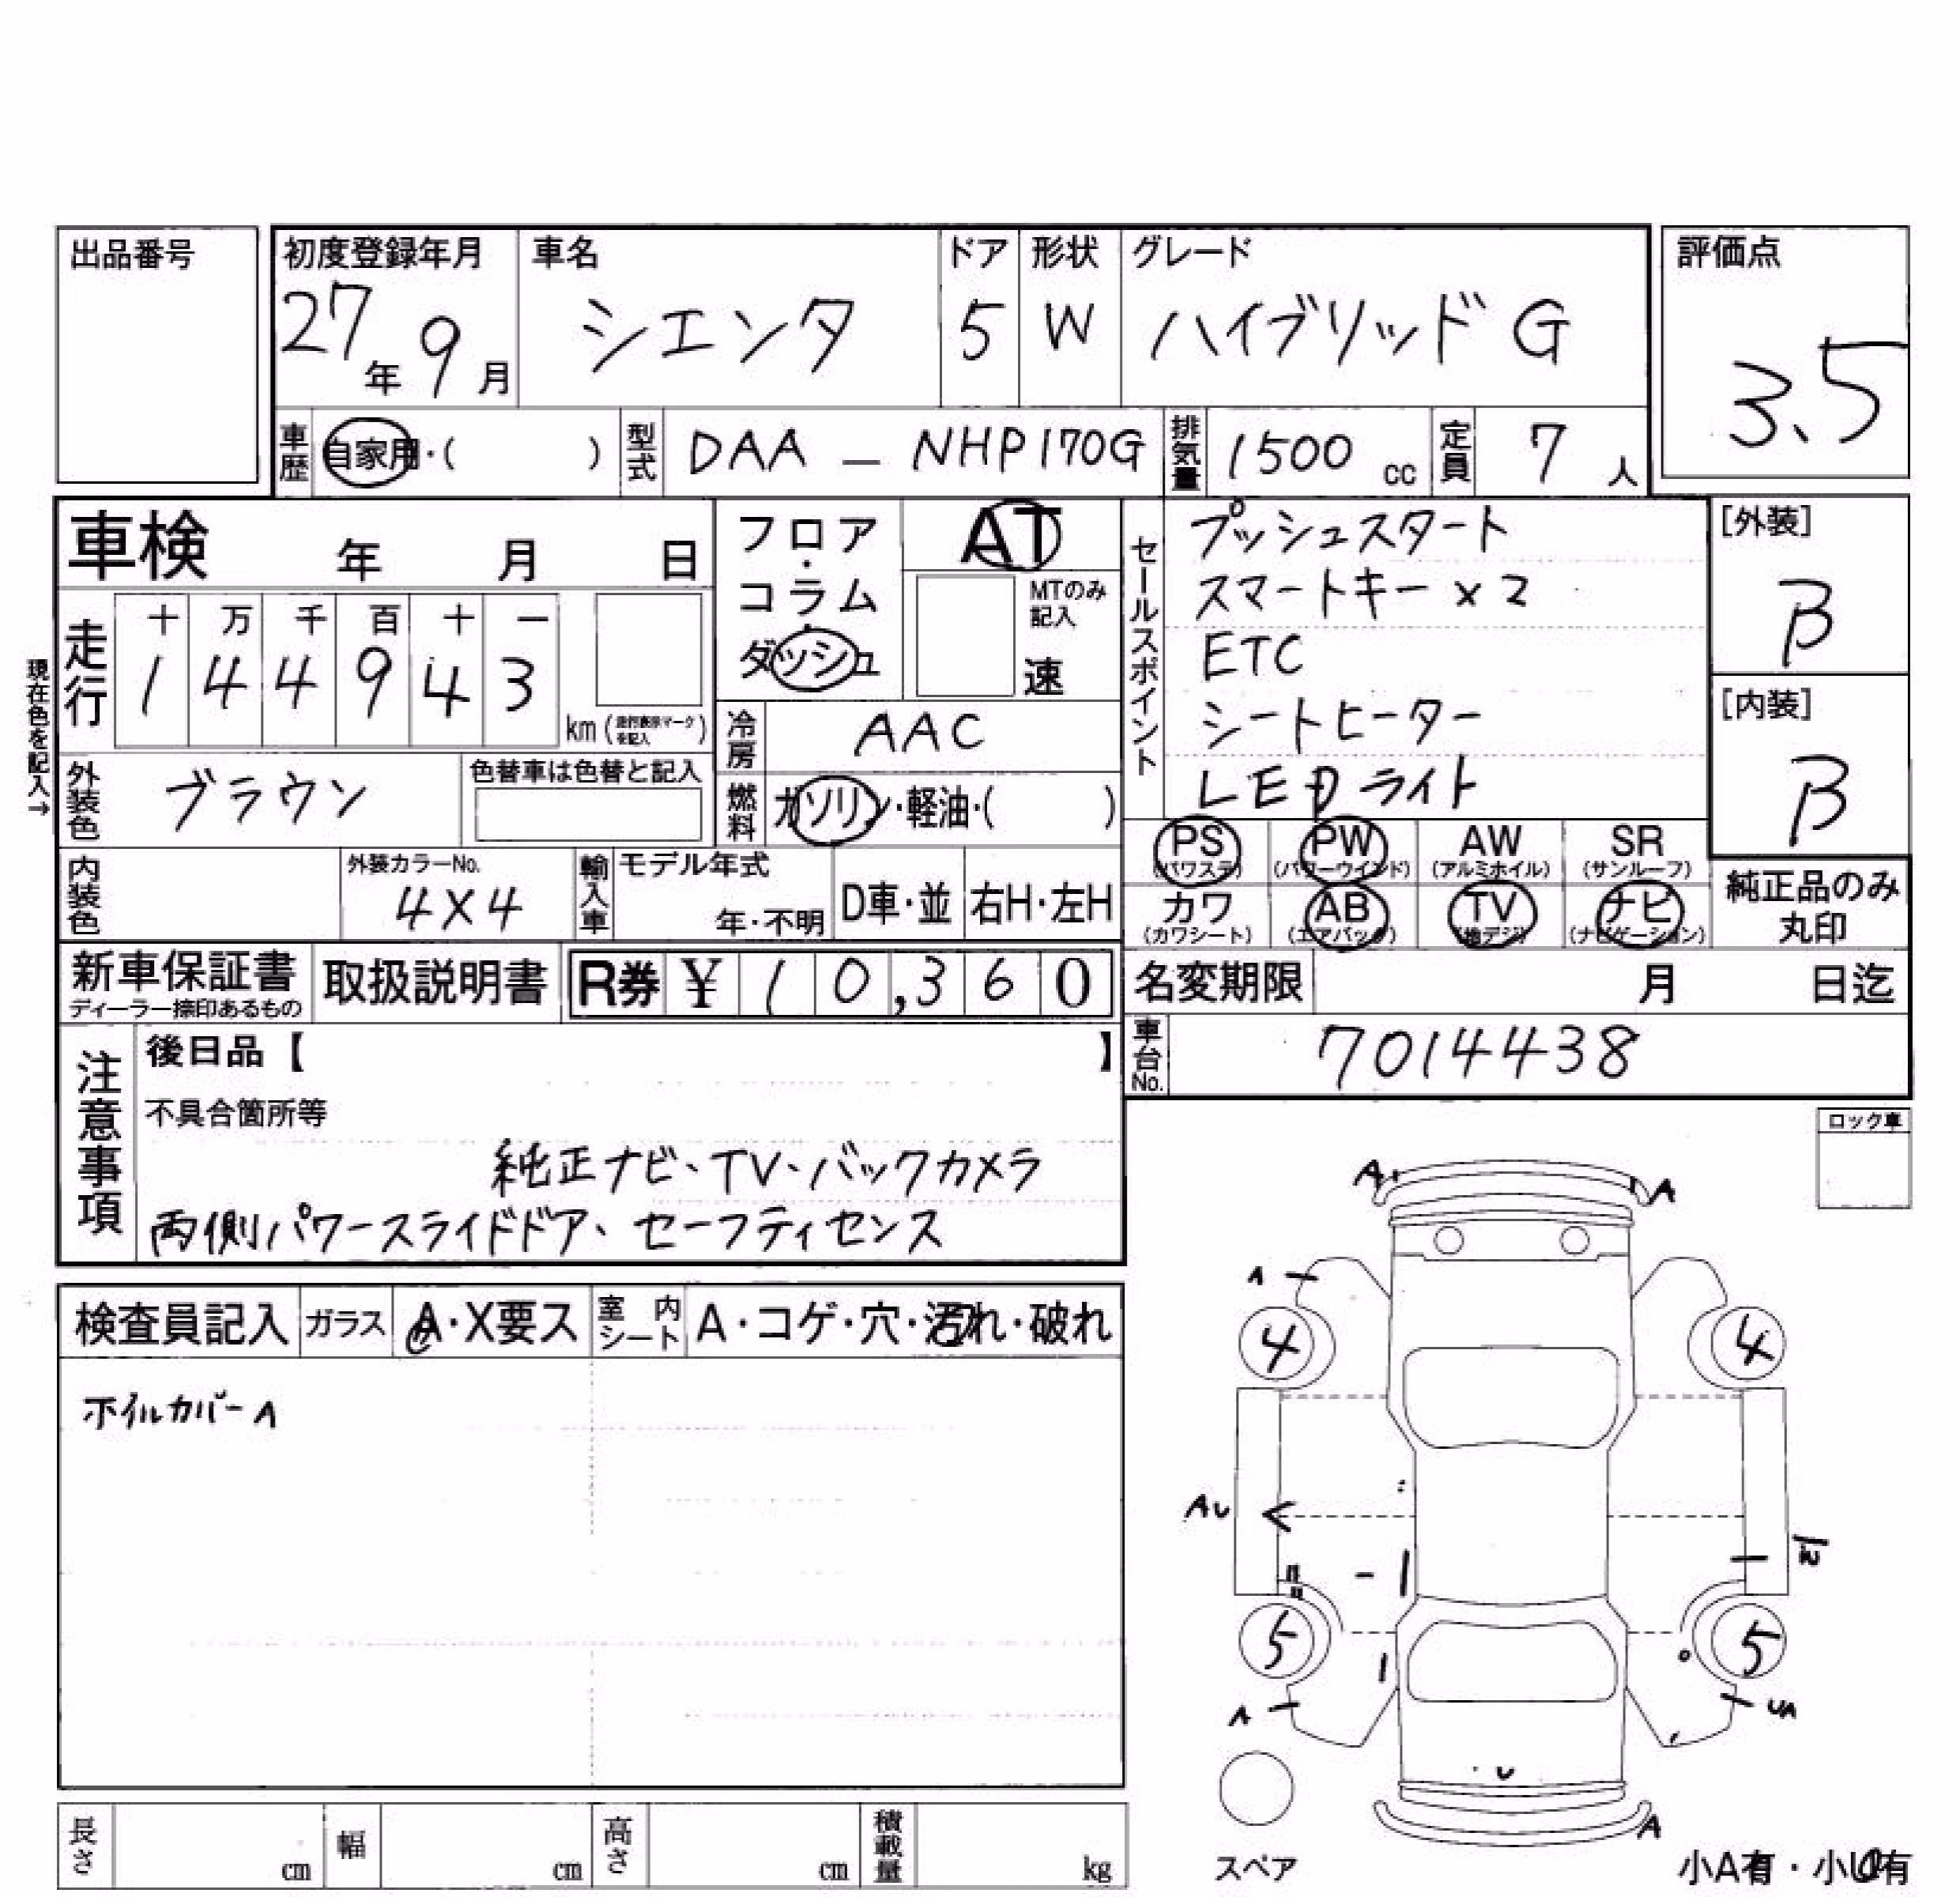 出品番号
初度登録年月 27年 9月
車名 シエンタ
ドア 5
形状 W
グレード ハイブリッド G
評価点 3.5
車歴 自家用・( )
型式 DAA — NHP170G
排気量 1500 cc
定員 7 人
車検 年 月 日
フロア・コラム・ダッシュ
AT
MTのみ記入 速
セールスポイント
プッシュスタート
スマートキー ×2
ETC
シートヒーター
LEDライト
[外装] B
[内装] B
現在色を記入→
走行 十 万 千 百 十 一
1 4 4 9 4 3 km (走行表示マークを記入)
冷房 AAC
外装色 ブラウン
色替車は色替と記入
燃料 ガソリン・軽油・( )
PS (パワステ) PW (パワーウインド) AW (アルミホイル) SR (サンルーフ)
カワ (カワシート) AB (エアバッグ) TV (地デジ) ナビ (ナビゲーション)
純正品のみ丸印
内装色
外装カラーNo. 4X4
輸入車 モデル年式 年・不明 D車・並 右H・左H
新車保証書 ディーラー捺印あるもの
取扱説明書
R券 ¥ 10,360
名変期限 月 日迄
車台No. 7014438
注意事項
後日品【 】
不具合箇所等
純正ナビ、TV、バックカメラ
両側パワースライドドア、セーフティセンス
ロック車
検査員記入 ガラス A・X要ス 室内シート A・コゲ・穴・汚れ・破れ
ホイルカバーA
A A
A
4 4
AU
5 5
A UA
U
A
スペア
小A有・小U有
長さ cm 幅 cm 高さ cm 積載量 kg